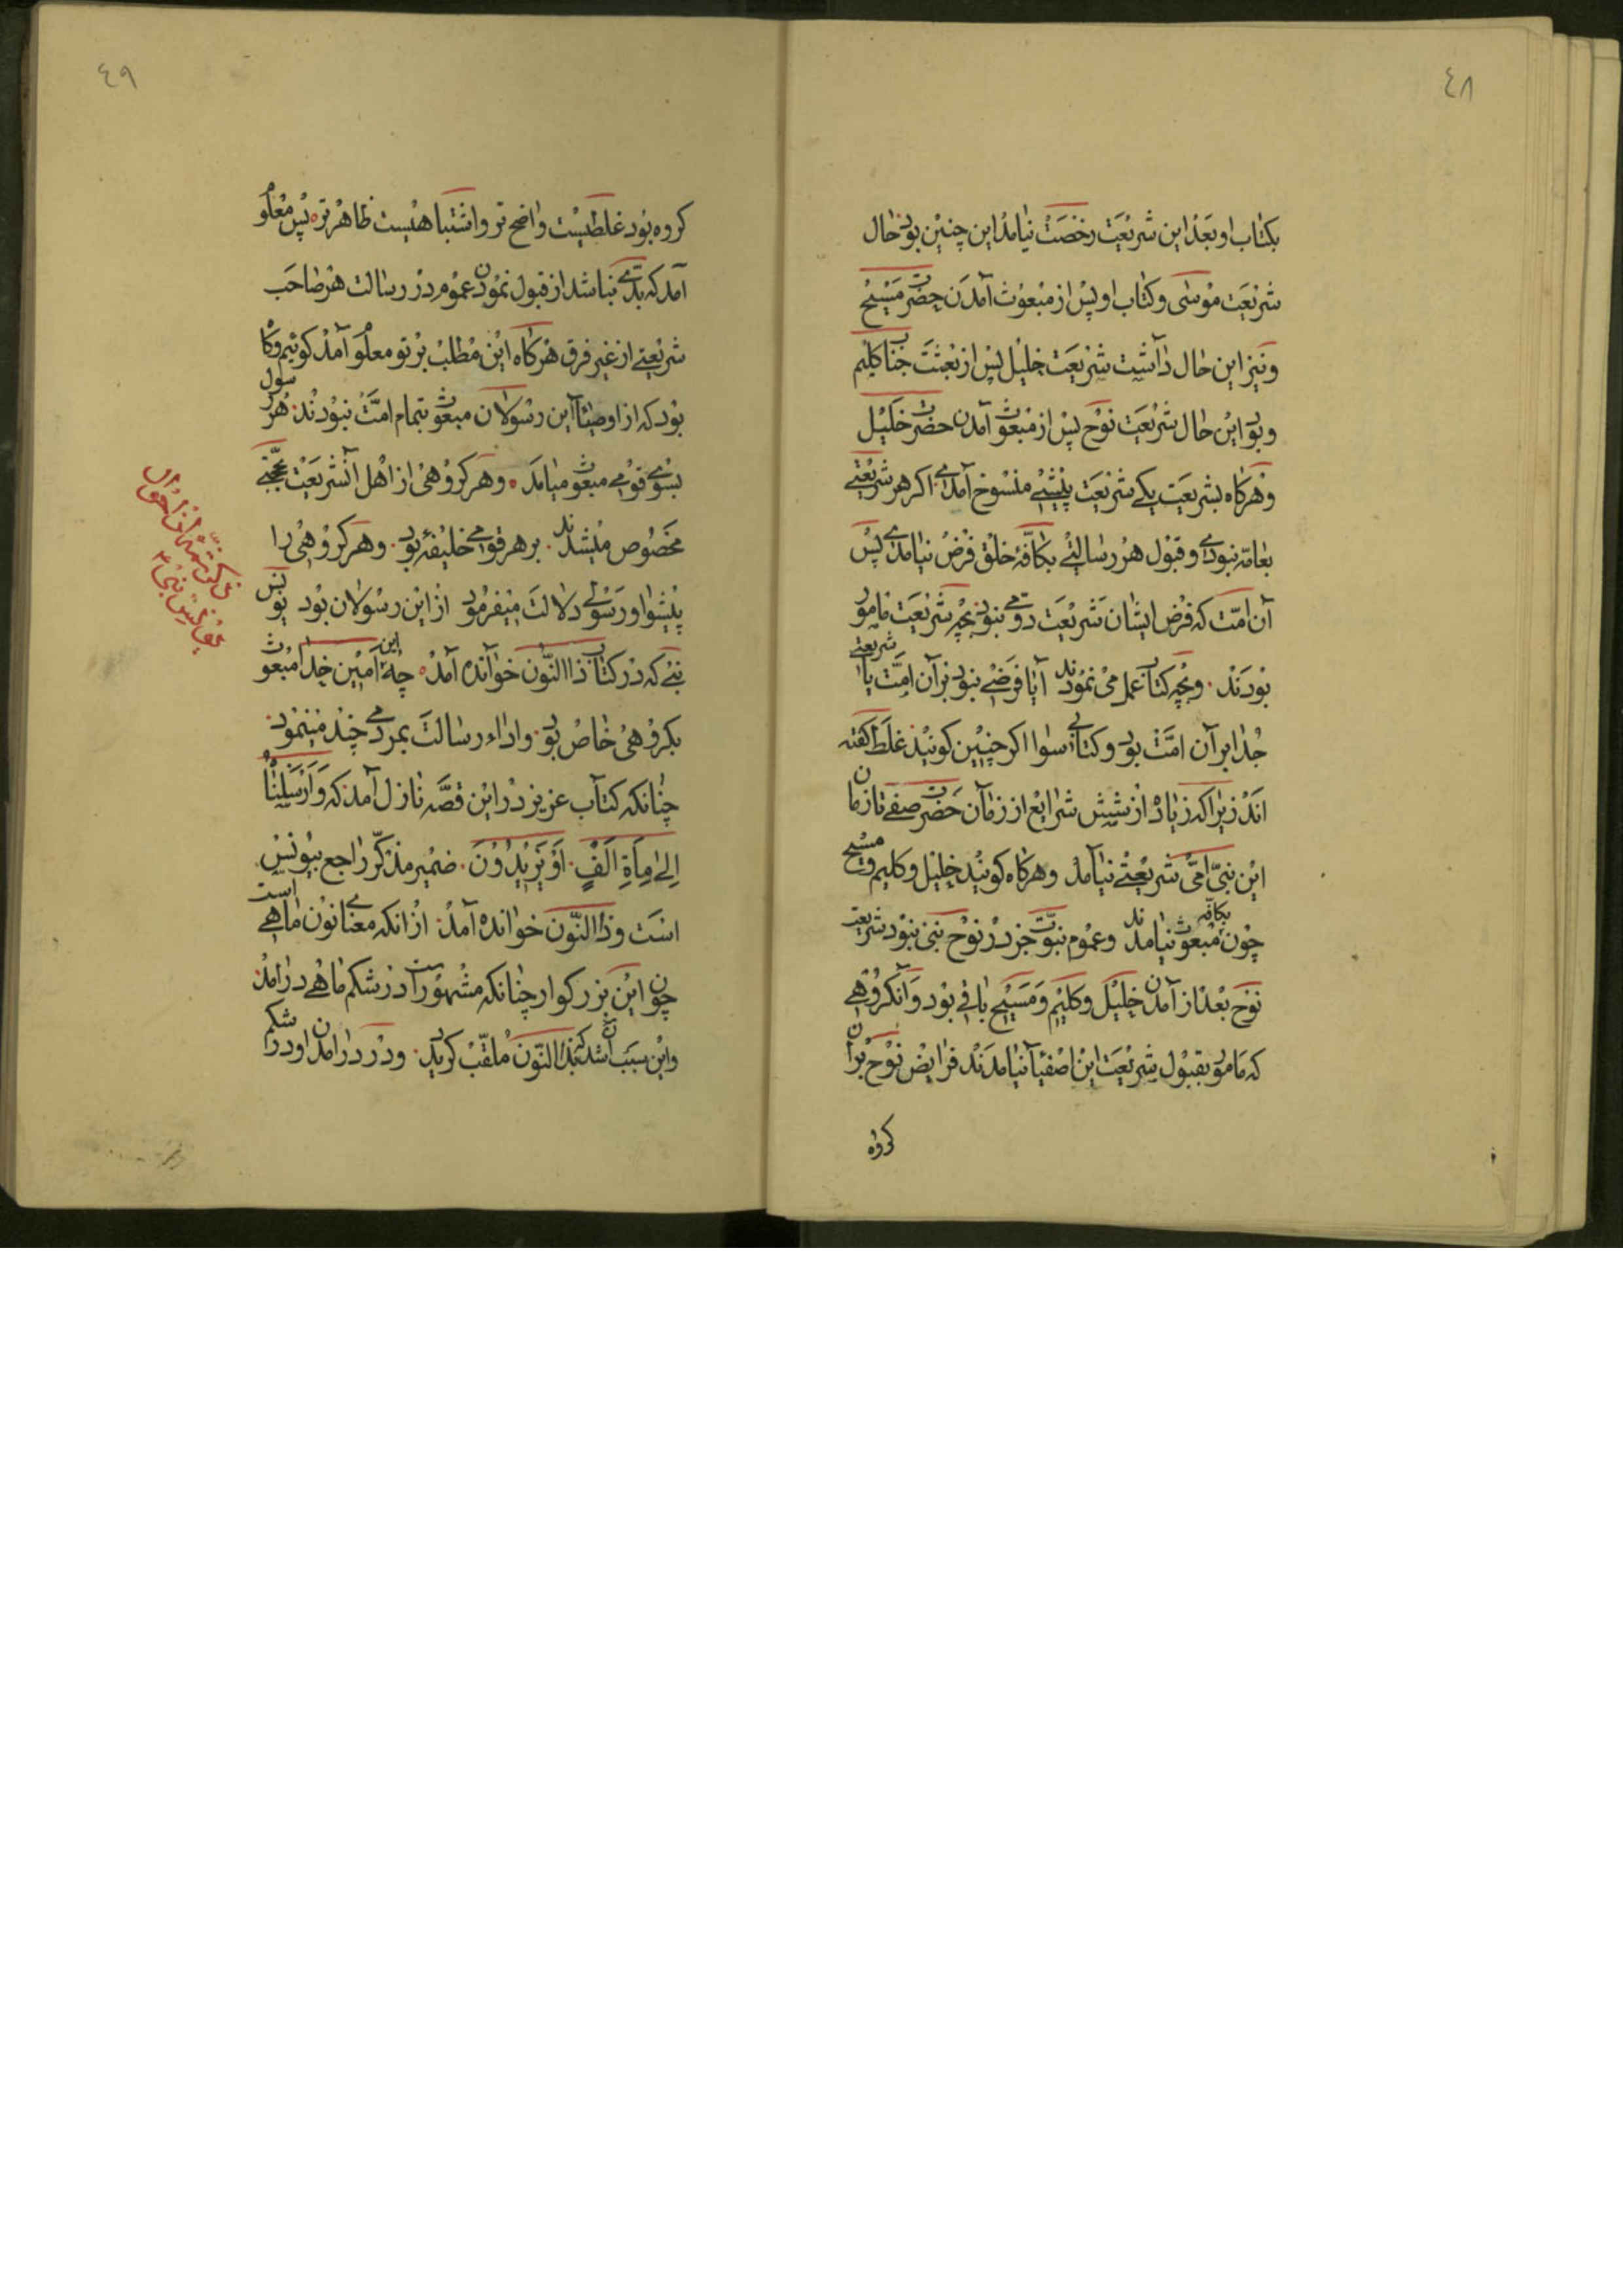 ٤٨
بکتاب او بعد این شریعت رخصت نیامد این چنین بود حال
شریعت موسی و کتاب او پس از مبعوث آمدن حضرت مسیح
و نیز این حال داشت شریعت خلیل پس از بعثت جناب کلیم
و بود این حال شریعت نوح پس از مبعوث آمدن حضرت خلیل
و هرکاه بشریعت یکی شریعت پیشی منسوخ آمدی اکر هر شریعتی
بعامه نبودی و قبول هر رسالتی بکافه خلق فرض نیامدی پس
آن امت که فرض ایشان شریعت دومی نبود بچه شریعت مامور
بودند . و بچه کتاب عمل می نمودند آیا فرضی نبود بر آن امت یا شریعتی
جدا بر آن امت بود و کتابی سوا اکر چنین کویند غلط کفته
اند زیرا که زیاد از شش شرایع از زمان حضرت صفی تا زمان
این نبی امی شریعتی نیامد وهرکاه کویند خلیل و کلیم و مسیح
چون بکافه مبعوث نیامدند وعموم نبوت جز در نوح نبی نبود شریعت
نوح بعد از آمدن خلیل و کلیم و مسیح باقی بود و آنکروهی
که مامور بقبول شریعت این اصفیا نیامدند فرایض نوح بر آن
کروه
٤٩
کروه بود غلطیست واضح تر و اشتباهیست ظاهر تر ه پس معلوم
آمد که بدی نباشد از قبول نمودن عموم در رسالت هر صاحب
شریعتی از غیر فرق هرکاه این مطلب بر تو معلوم آمد کوئیم وکا
بود که از اوصیاء این رسولان مبعوث بتمام امت نبودند . هر رسول
بسوی قومی مبعوث میامد ه وهر کروهی از اهل آنشریعت بحجتی
مخصوص میشدند . بر هر قومی خلیفه بود . وهر کروهی را
پیشوا و رسولی دلالت میفرمود از این رسولان بود یونس
نبی که در کتاب ذا النون خوانده آمد ه چه این امین خدا مبعوث
بکروهی خاص بود . و اداء رسالت بمردمی چند مینمود .
چنانکه کتاب عزیز در این قصه نازل آمد که وَاَرْسَلْنٰاهُ
اِلیٰ مِاَةِ اَلْفٍ . اَوْ یَزیٖدُوُنَ . ضمیر مذکّر راجع بیونس
است و ذا النون خوانده آمد . از انکه معنای نون ماهی است
چون این بزرکوار چنانکه مشهور است در شکم ماهی درامد .
و این سبب آن شد که بذا النون ملقب کردید . و در درامدن او در شکم